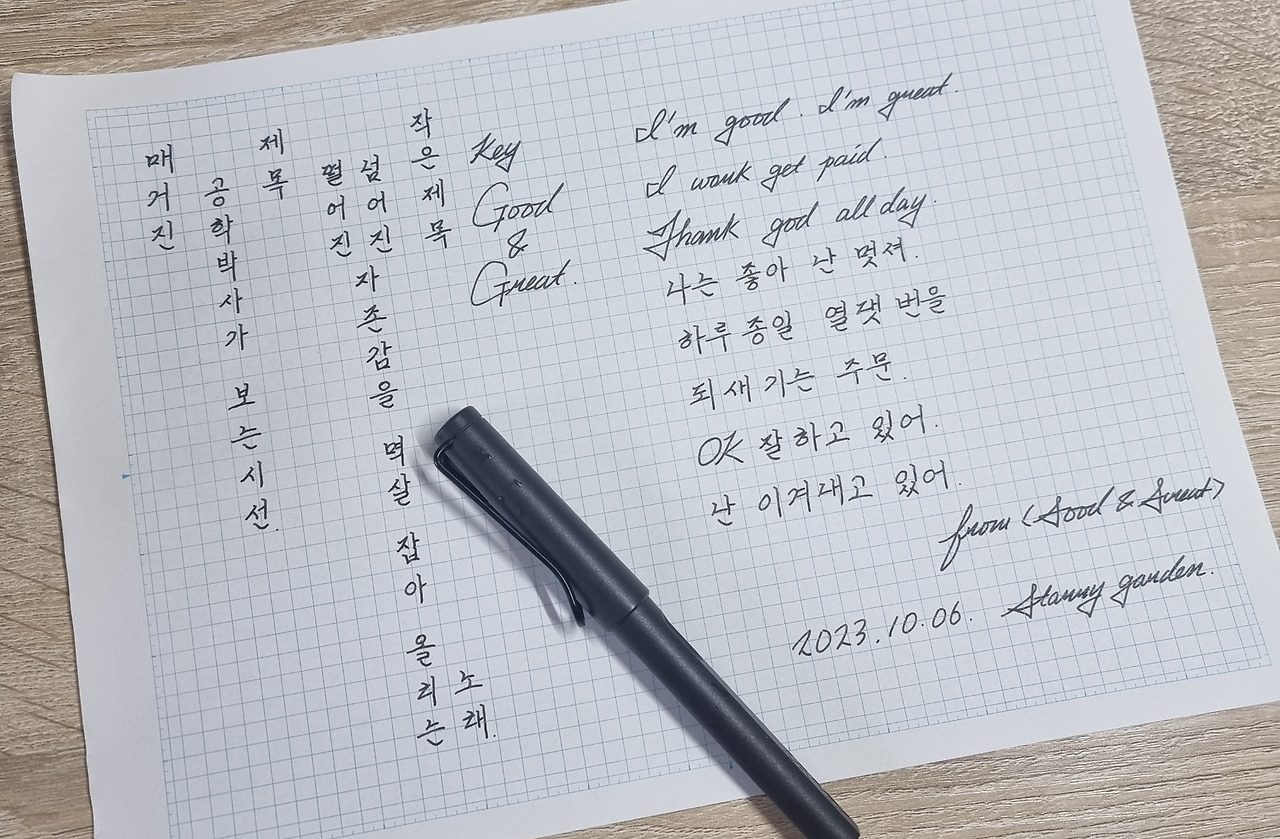 매거진
공학박사가 보는 시선.
제목
떨어진
넘어진 자존감을 멱살 잡아 올리는
노래.
작은 제목
Key
Good
&
Great.
I'm good. I'm great.
I work get paid.
Thank god all day.
나는 좋아 난 멋져.
하루종일 열댓 번을
되새기는 주문.
OK 잘하고 있어.
난 이겨내고 있어.
from <Good & Great>
2023.10.06. Starry garden.